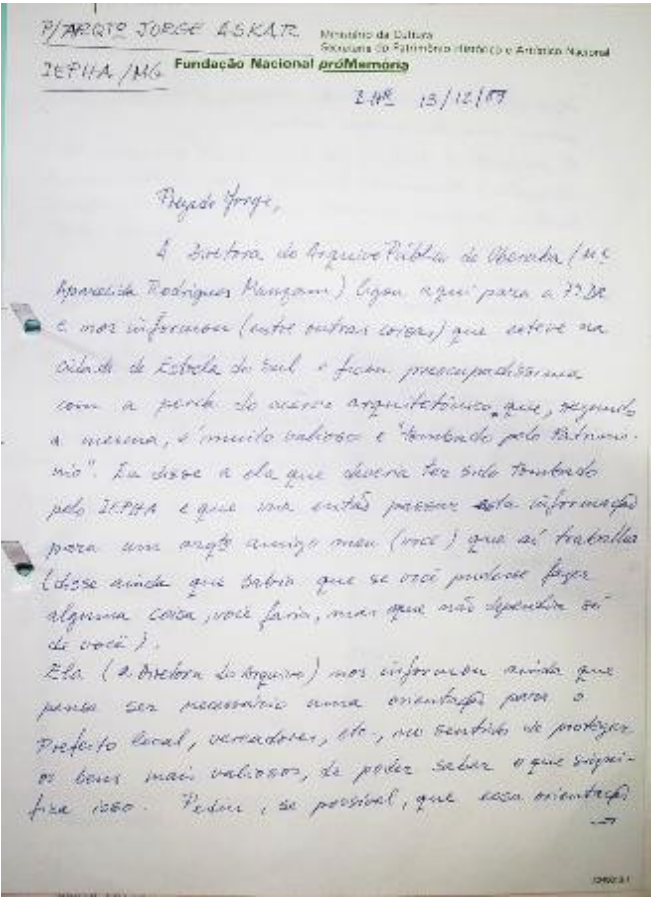 P/ ARQTº JORGE ASKAR
IEPHA/MG
Ministério da Cultura
Secretaria do Patrimônio Histórico e Artístico Nacional
Fundação Nacional próMemória
13/12/89
Prezado Jorge,
A Diretora do Arquivo Público de Uberaba (Mª
Aparecida Rodrigues Manzam) ligou aqui para a 7ª DR
e nos informou (entre outras coisas) que esteve na
cidade de Estrela do Sul e ficou preocupadíssima
com a perda do acervo arquitetônico, que, segundo
a mesma, é muito valioso e "tombado pelo Patrimô-
nio". Eu disse a ela que deveria ter sido tombado
pelo IEPHA e que iria então passar esta informação
para um arqtº amigo meu (você) que aí trabalha
(disse ainda que sabia que se você pudesse fazer
alguma coisa, você faria, mas que não dependia só
de você).
Ela (a Diretora do Arquivo) nos informou ainda que
pensa ser necessário uma orientação para o
Prefeito local, vereadores, etc., no sentido de proteger
os bens mais valiosos, de poder saber o que signi-
fica isso. Pediu, se possível, que essa orientação